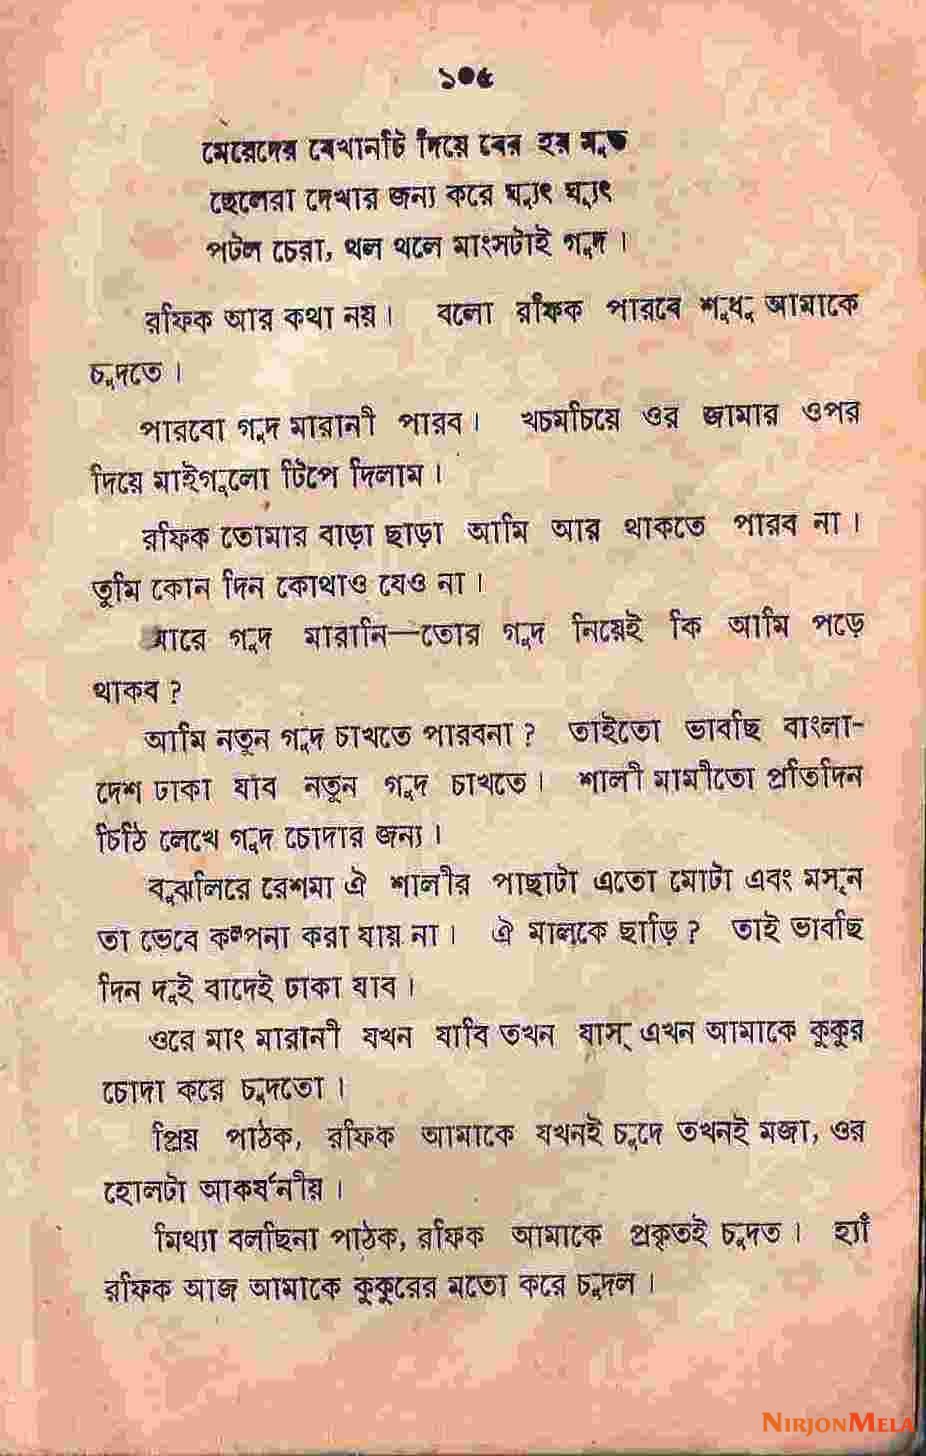 ১০৫
মেয়েদের যেখানটি দিয়ে বের হয় মুত
ছেলেরা দেখার জন্য করে ঘ্যুৎ ঘ্যুৎ
পটল চেরা, থল থলে মাংসটাই গুদ ।
রফিক আর কথা নয় । বলো রফিক পারবে শুধু আমাকে
চুদতে ।
পারবো গুদ মারানী পারব । খচমচিয়ে ওর জামার ওপর
দিয়ে মাইগুলো টিপে দিলাম ।
রফিক তোমার বাড়া ছাড়া আমি আর থাকতে পারব না ।
তুমি কোন দিন কোথাও যেও না ।
যারে গুদ মারানি—তোর গুদ নিয়েই কি আমি পড়ে
থাকব ?
আমি নতুন গুদ চাখতে পারবনা ? তাইতো ভাবছি বাংলা-
দেশ ঢাকা যাব নতুন গুদ চাখতে । শালী মামীতো প্রতিদিন
চিঠি লেখে গুদ চোদার জন্য ।
বুঝলিরে রেশমা ঐ শালীর পাছাটা এতো মোটা এবং মসৃন
তা ভেবে কল্পনা করা যায় না । ঐ মালকে ছাড়ি ? তাই ভাবছি
দিন দুই বাদেই ঢাকা যাব ।
ওরে মাং মারানী যখন যাবি তখন যাস্ এখন আমাকে কুকুর
চোদা করে চুদতো ।
প্রিয় পাঠক, রফিক আমাকে যখনই চুদে তখনই মজা, ওর
হোলটা আকর্ষনীয় ।
মিথ্যা বলছিনা পাঠক, রফিক আমাকে প্রকৃতই চুদত । হ্যাঁ
রফিক আজ আমাকে কুকুরের মতো করে চুদল ।
NIRJONMELA